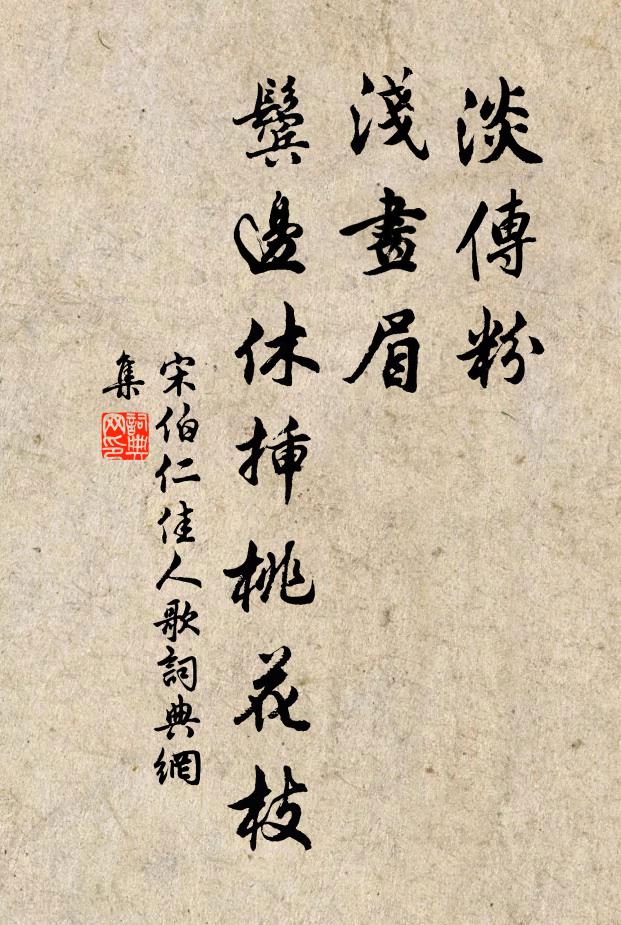 淡傅粉
淺畫眉
鬢邊休挿桃花枝
宋伯仁佳人歌詞典網
集
詞典
网印